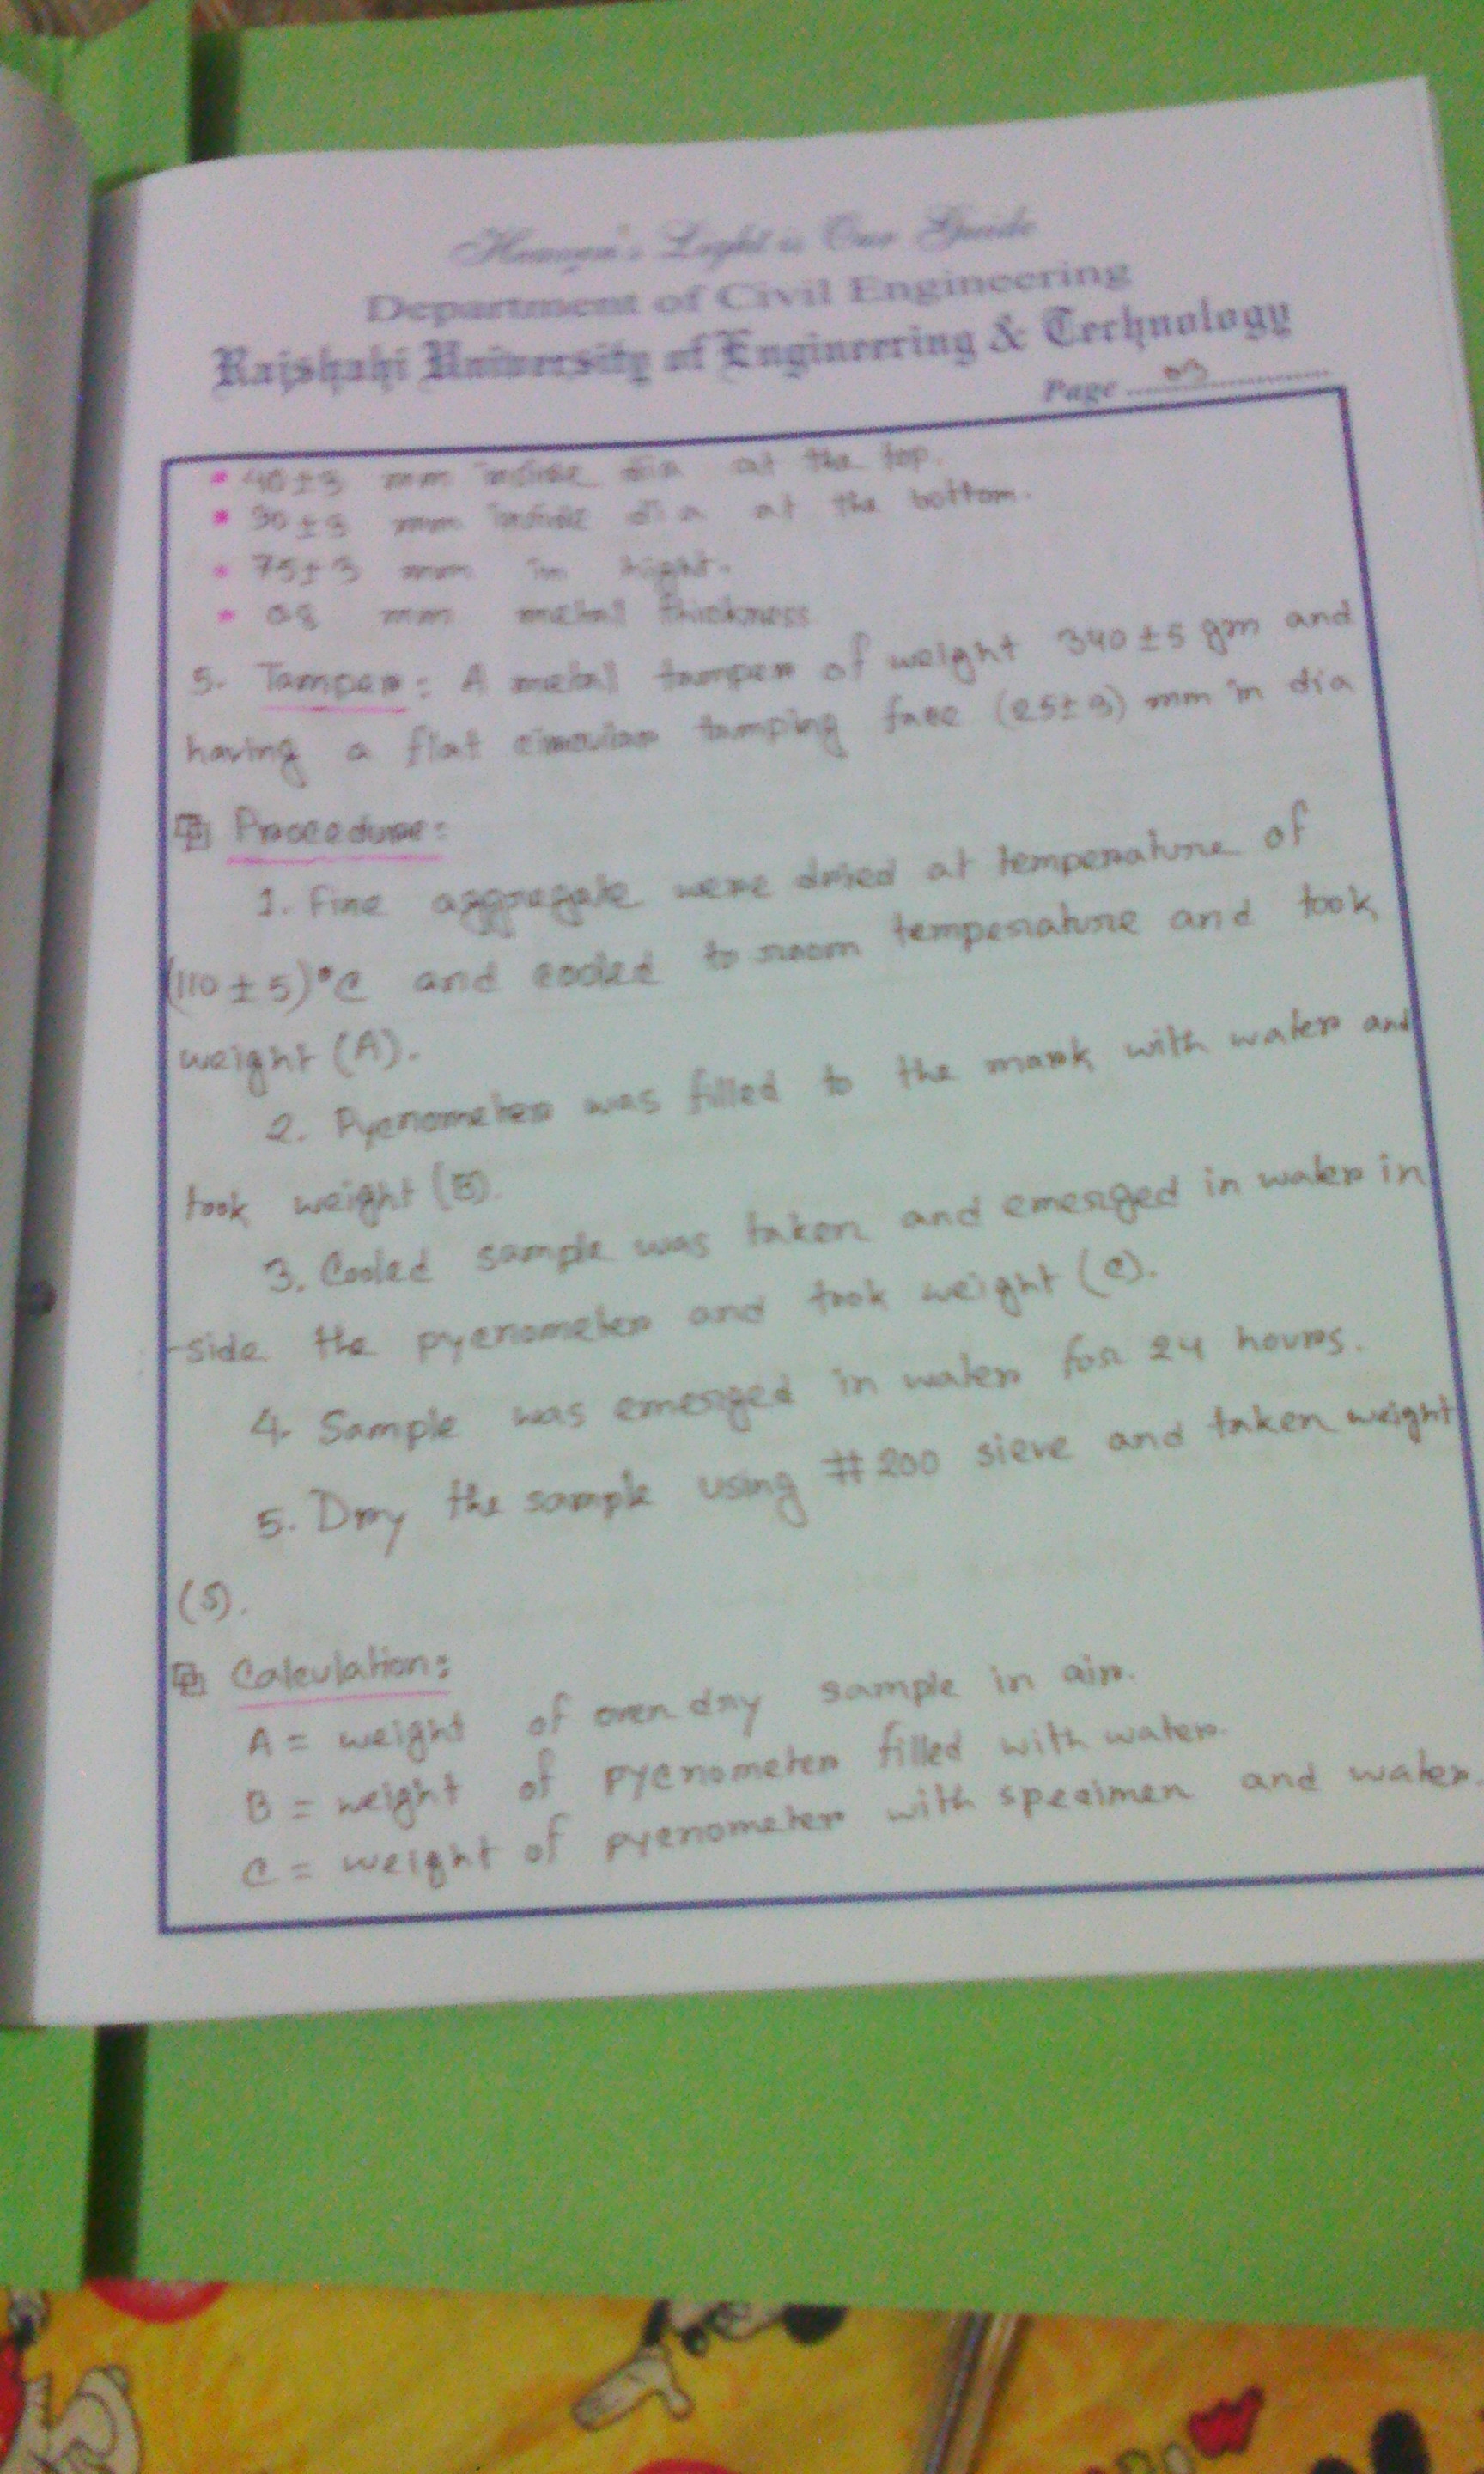 Heaven's Light is Our Guide
Department of Civil Engineering
Rajshahi University of Engineering & Technology
Page 03
* 40±3 mm inside dia at the top.
* 90±3 mm inside dia at the bottom.
* 75±3 mm in hight.
* 0.8 mm metal thickness
5. Tamper: A metal tamper of weight 340±5 gm and
having a flat circular tamping face (25±3) mm in dia
Procedure:
1. Fine aggregate were dried at temperature of
(110±5)°C and cooled to room temperature and took
weight (A).
2. Pycnometer was filled to the mark with water and
took weight (B).
3. Cooled sample was taken and emerged in water in
-side the pycnometer and took weight (C).
4. Sample was emerged in water for 24 hours.
5. Dry the sample using #200 sieve and taken weight
(S).
Calculation:
A = weight of oven dry sample in air.
B = weight of pycnometer filled with water.
C = weight of pycnometer with specimen and water.